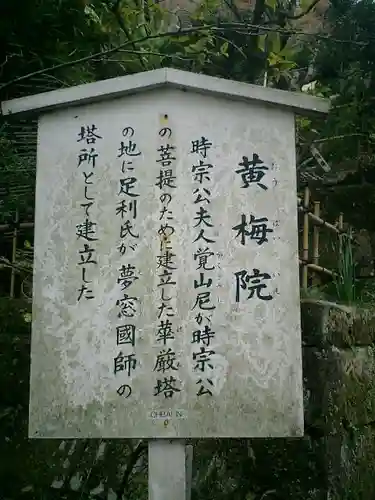 黄梅院
時宗公夫人覚山尼が時宗公
の菩提のために建立した華厳塔
の地に足利氏が夢窓國師の
塔所として建立した
OHBAI IN